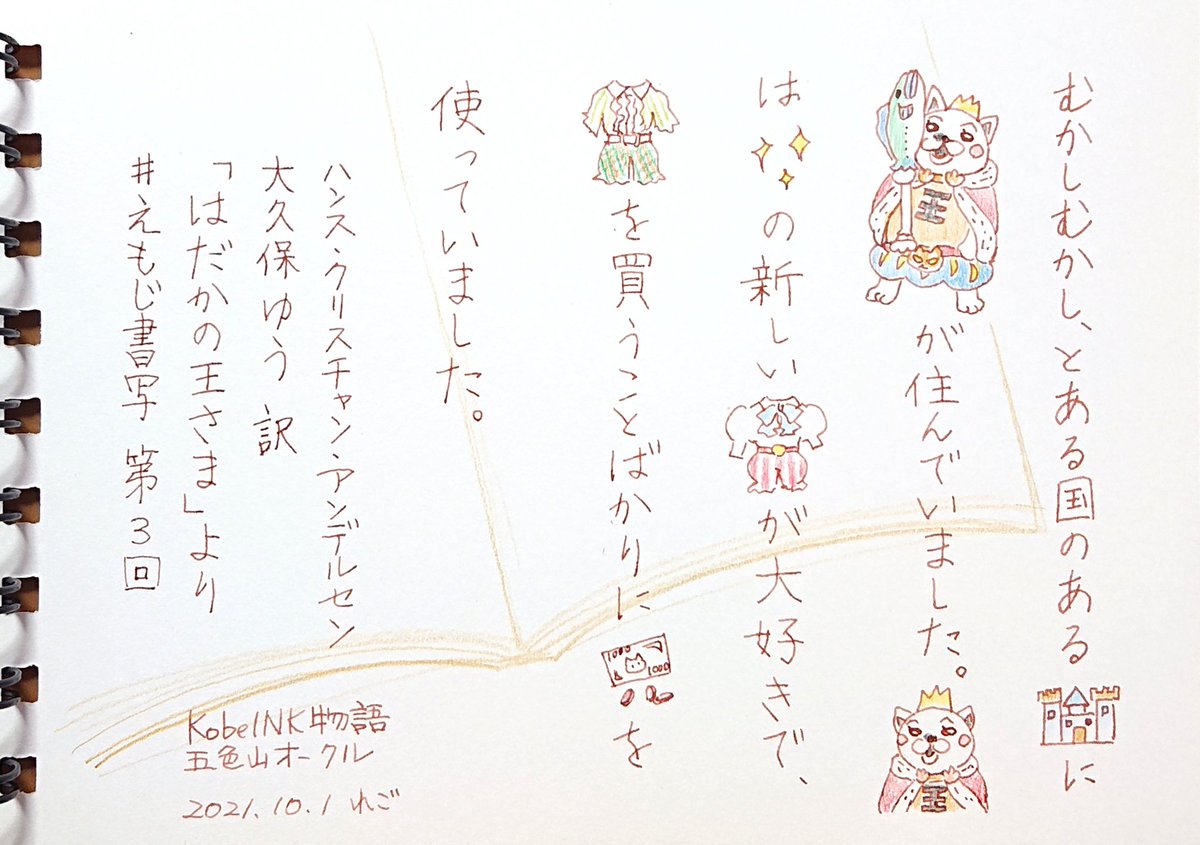 むかしむかし、とある国のあるに
王
が住んでいました。
王
はの新しいが大好きで、
を買うことばかりに
1000
1000
を
使っていました。
ハンス・クリスチャン・アンデルセン
大久保ゆう 訳
「はだかの王さま」より
#えもじ書写 第3回
KobeINK物語
五色山オークル
2021.10.1 れご